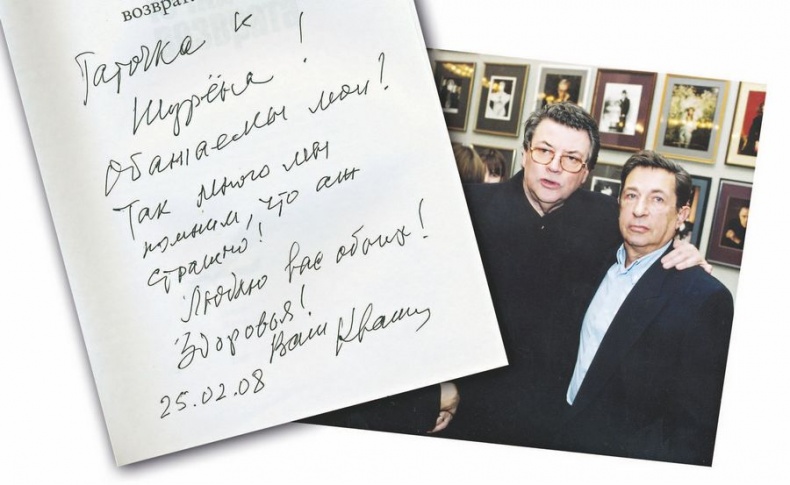 возврат
Таточка и
Шурёна!
Обожаемые мои!
Так много мы
помним, что аж
страшно!
Люблю вас обоих!
Здоровья!
Ваш Кваша
25.02.08